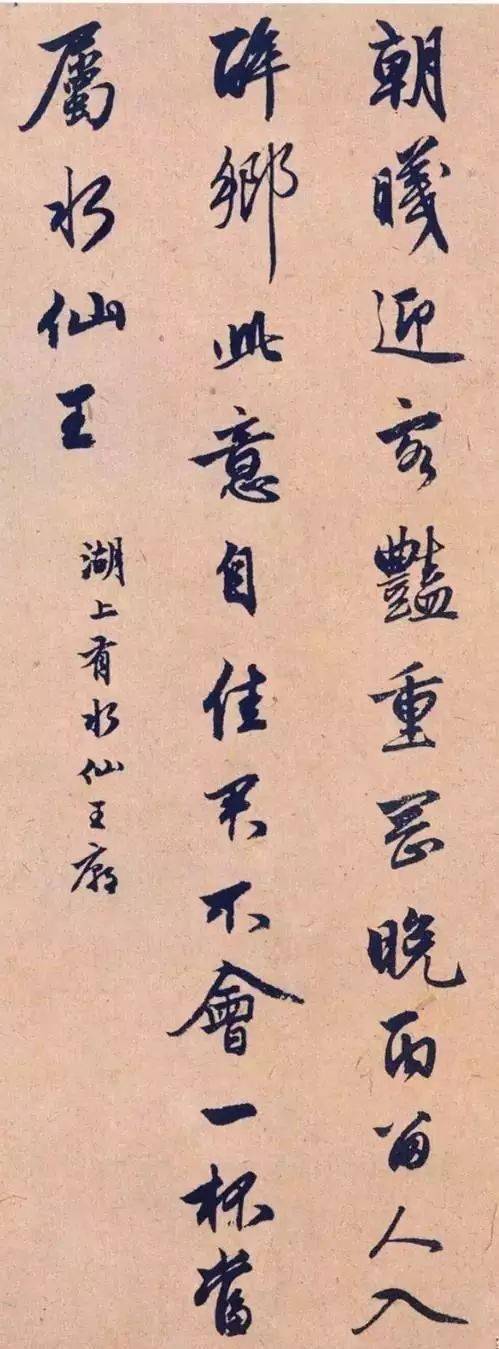 朝曦迎客豔重岡晚雨留人入
醉鄉此意自佳君不會一杯當
屬水仙王
湖上有水仙王廟